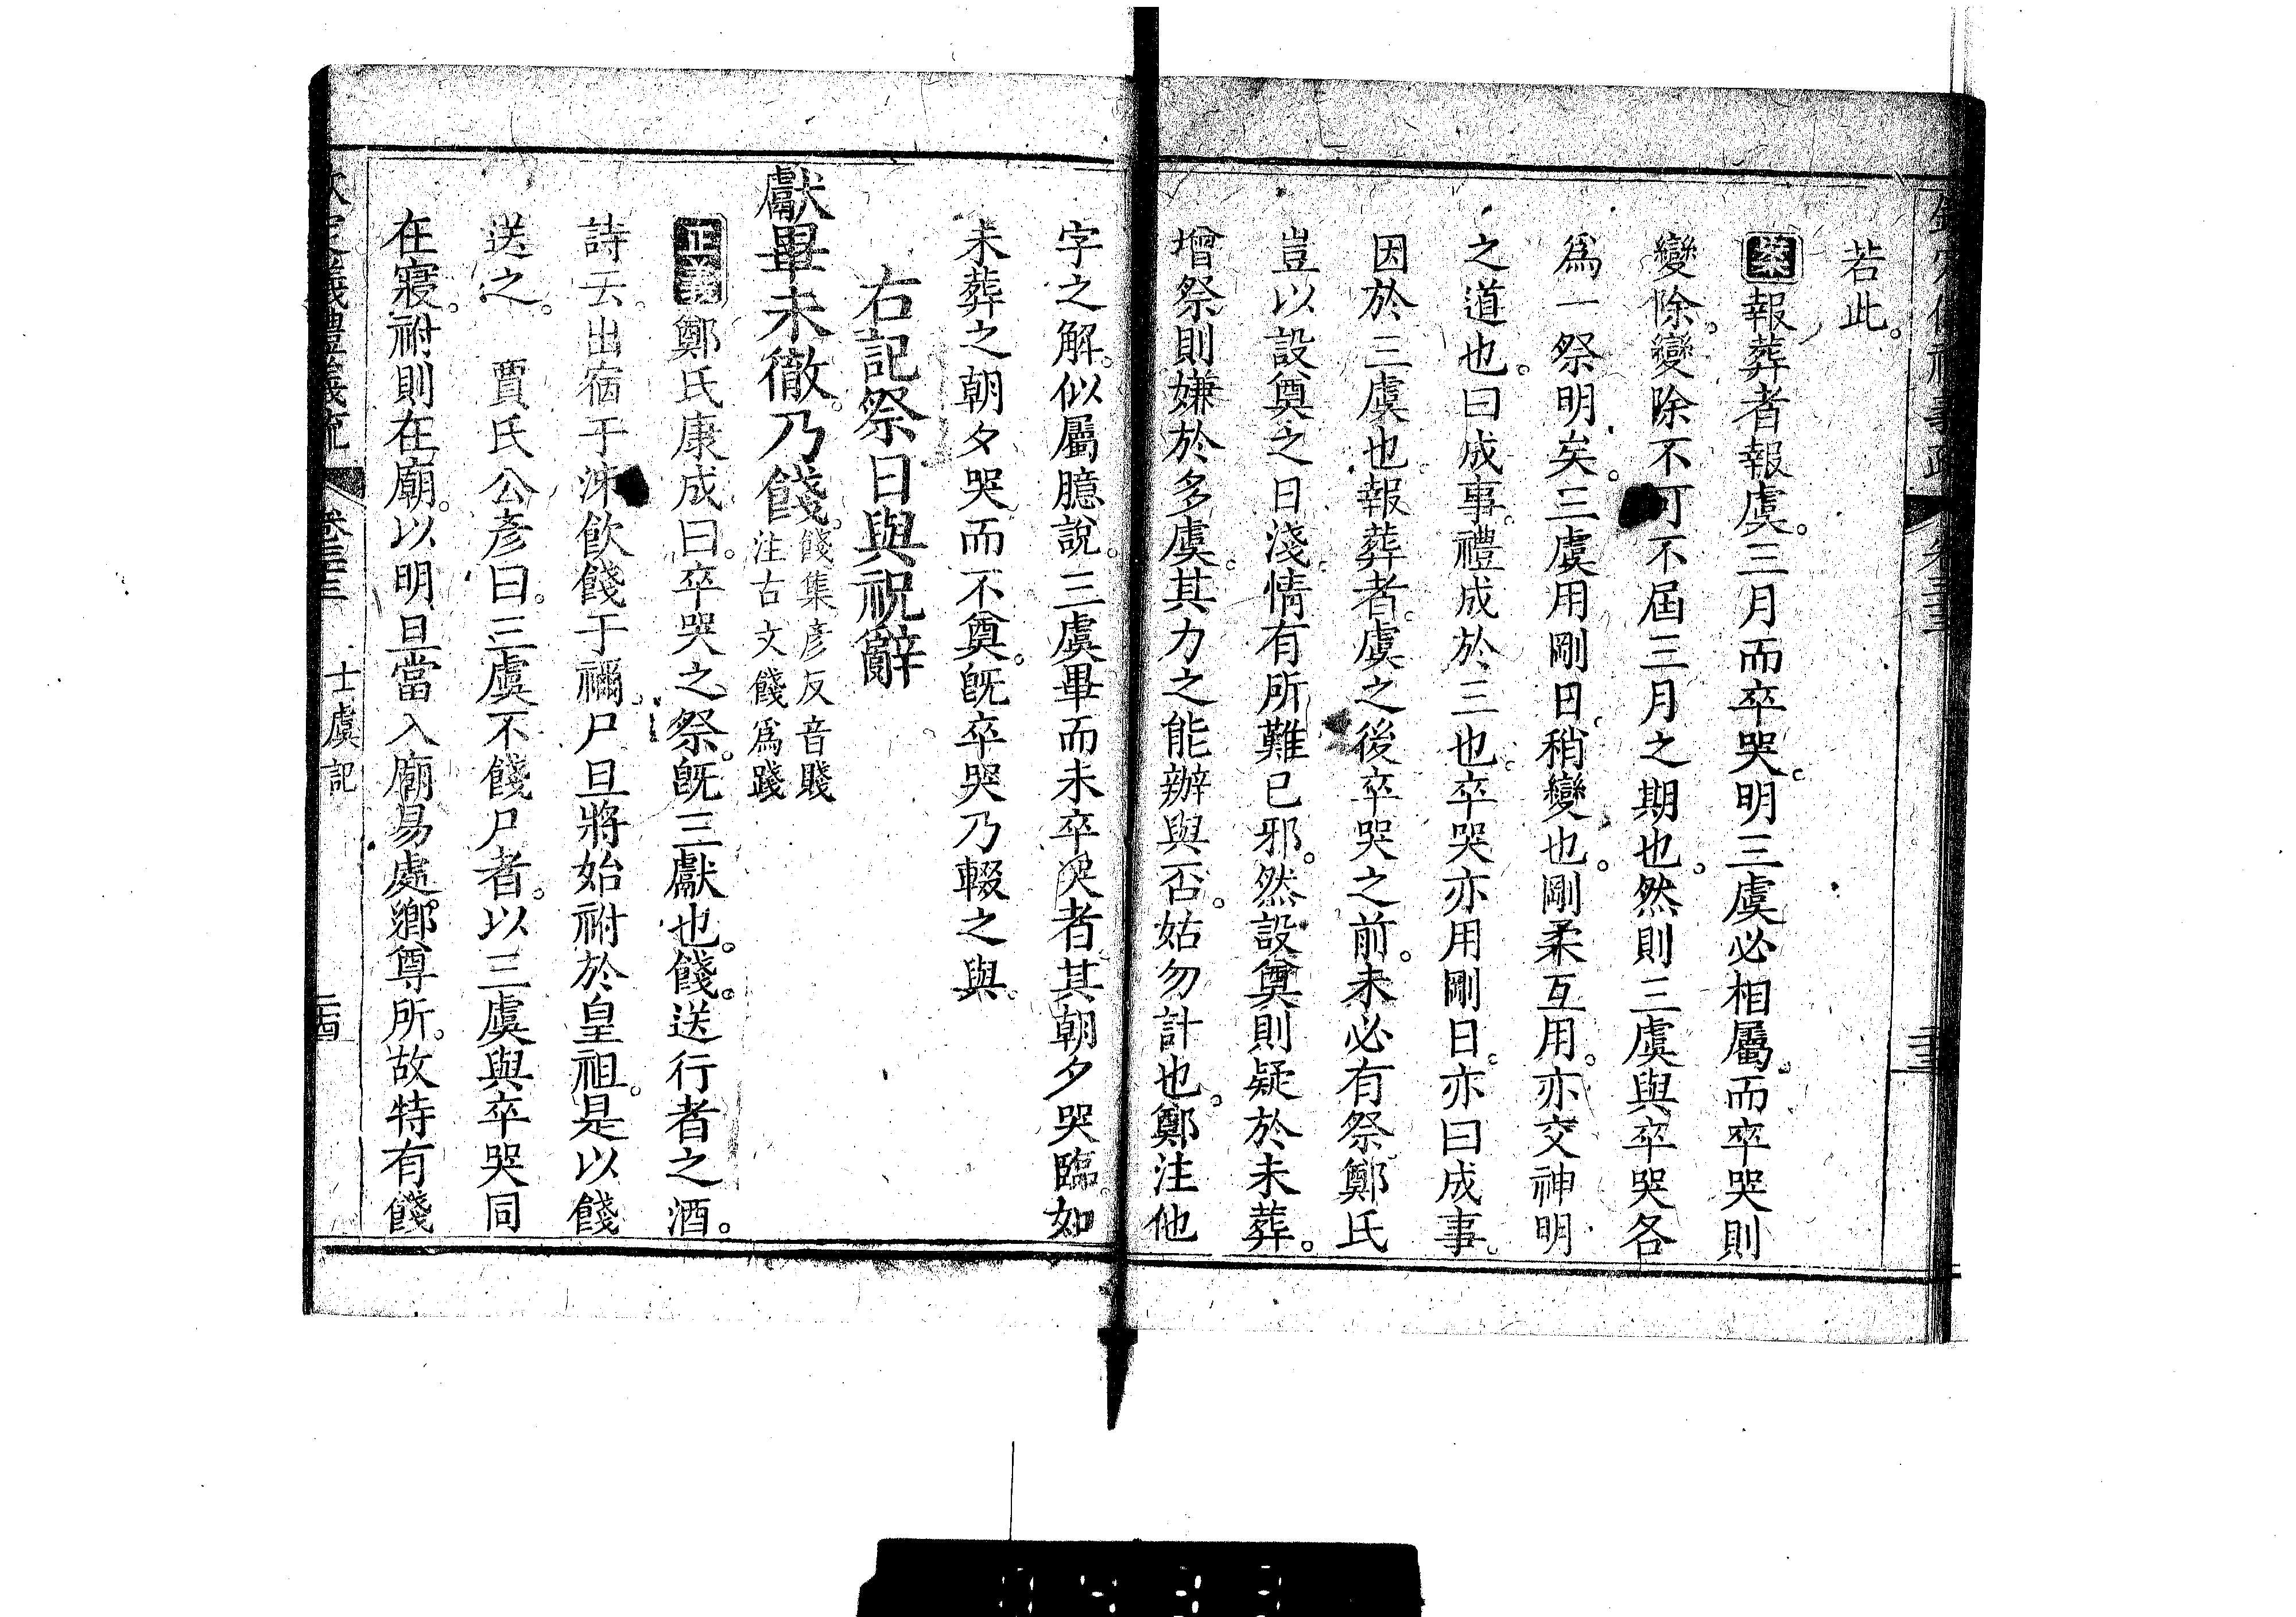 若此。
案報葬者報虞。三月而卒哭。明三虞必相屬。而卒哭則
變除。變除不可不屆三月之期也。然則三虞與卒哭各
爲一祭明矣。三虞用剛日。稍變也。剛柔互用。亦交神明
之道也。曰成事。禮成於三也。卒哭亦用剛日。亦曰成事。
因於三虞也。報葬者。虞之後卒哭之前。未必有祭。鄭氏
豈以設奠之日淺。情有所難已邪。然設奠則疑於未葬。
增祭則嫌於多虞。其力之能辦與否。姑勿計也。鄭注他
字之解。似屬臆說。三虞畢而未卒哭者。其朝夕哭臨。如
未葬之朝夕哭。而不奠。旣卒哭乃輟之與。
右記祭日與祝辭
獻畢未徹。乃餞。餞集彦反音賤
注古文餞爲踐
正義鄭氏康成曰。卒哭之祭。旣三獻也。餞。送行者之酒。
詩云。出宿于泲。飲餞于禰。尸旦將始祔於皇祖。是以餞
送之。 賈氏公彦曰。三虞不餞尸者。以三虞與卒哭同
在寢。祔則在廟。以明旦當入廟。易處鄕尊所。故特有餞
卷三十三 士虞記